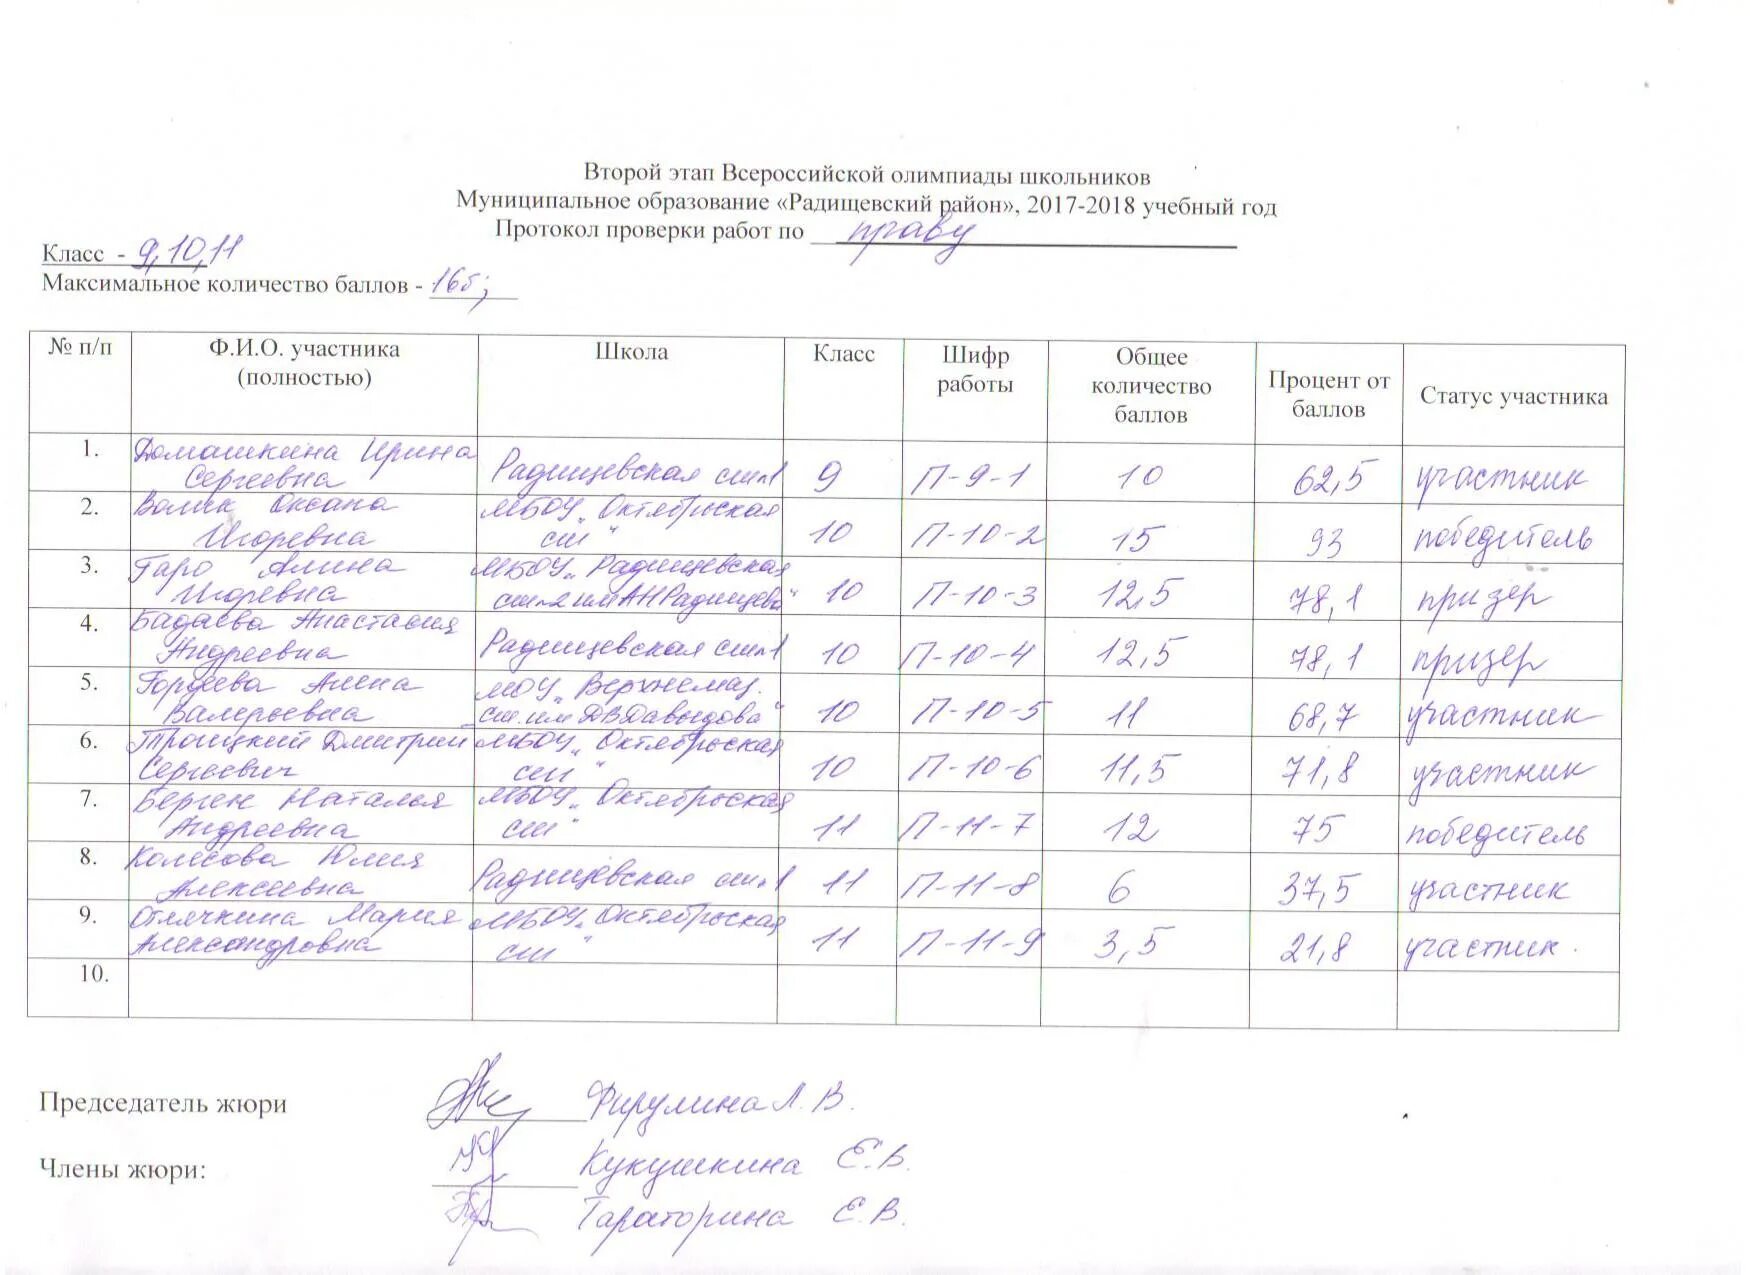 Второй этап Всероссийской олимпиады школьников
Муниципальное образование «Радищевский район», 2017-2018 учебный год
Протокол проверки работ по праву
Класс - 9,10,11
Максимальное количество баллов - 16б;
№ п/п Ф.И.О. участника (полностью) Школа Класс Шифр работы Общее количество баллов Процент от баллов Статус участника
1. Домашкина Ирина Сергеевна Радищевская сш№1 9 П-9-1 10 62,5 участник
2. Волик Оксана Игоревна МБОУ „Октябрьская сш" 10 П-10-2 15 93 победитель
3. Гаро Алина Игоревна МБОУ „Радищевская сш№2 им АН Радищева" 10 П-10-3 12,5 78,1 призер
4. Бадаева Анастасия Андреевна Радищевская сш№1 10 П-10-4 12,5 78,1 призер
5. Гордеева Алена Валерьевна МОУ „Верхнемаз. сш. им ДВДавыдова" 10 П-10-5 11 68,7 участник
6. Троицкий Дмитрий Сергеевич МБОУ „Октябрьская сш" 10 П-10-6 11,5 71,8 участник
7. Берген Наталья Андреевна МБОУ „Октябрьская сш" 11 П-11-7 12 75 победитель
8. Колесова Юлия Алексеевна Радищевская сш№1 11 П-11-8 6 37,5 участник
9. Отлячкина Мария Александровна МБОУ „Октябрьская сш" 11 П-11-9 3,5 21,8 участник.
10.
Председатель жюри Фирулина Л. В.
Члены жюри: Кукушкина Е.В.
Тараторина Е.В.